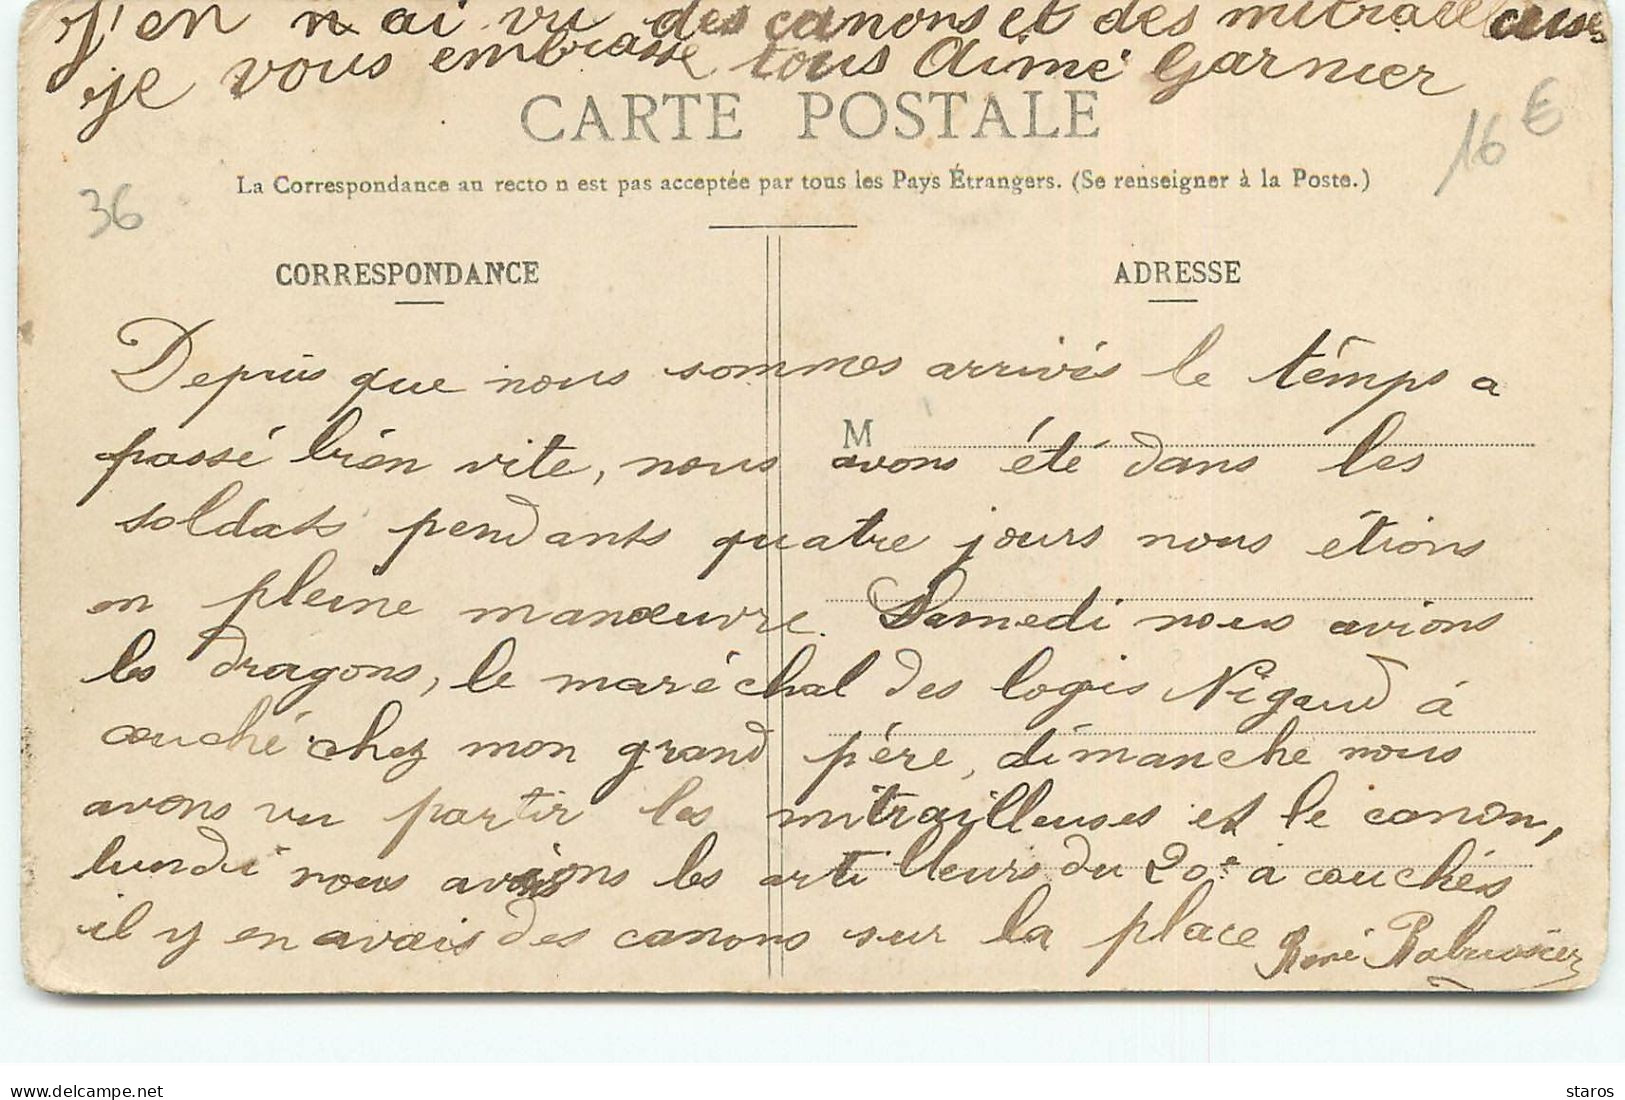 J'en n ai vu des canons et des mitrailleuses
je vous embrasse tous Aimé Garnier
CARTE POSTALE
16 €
La Correspondance au recto n est pas acceptée par tous les Pays Étrangers. (Se renseigner à la Poste.)
36
CORRESPONDANCE
ADRESSE
Depuis que nous sommes arrivés le témps a
M
passé bien vite, nous avons été dans les
soldats pendants quatre jours nous étions
en pleine manœuvre. Samedi nous avions
les dragons, le maréchal des logis Nigaud à
couché chez mon grand père, dimanche nous
avons vu partir les mitrailleuses et le canon,
lundi nous avions les artilleurs du 20e à couchés
il y en avais des canons sur la place René
staros